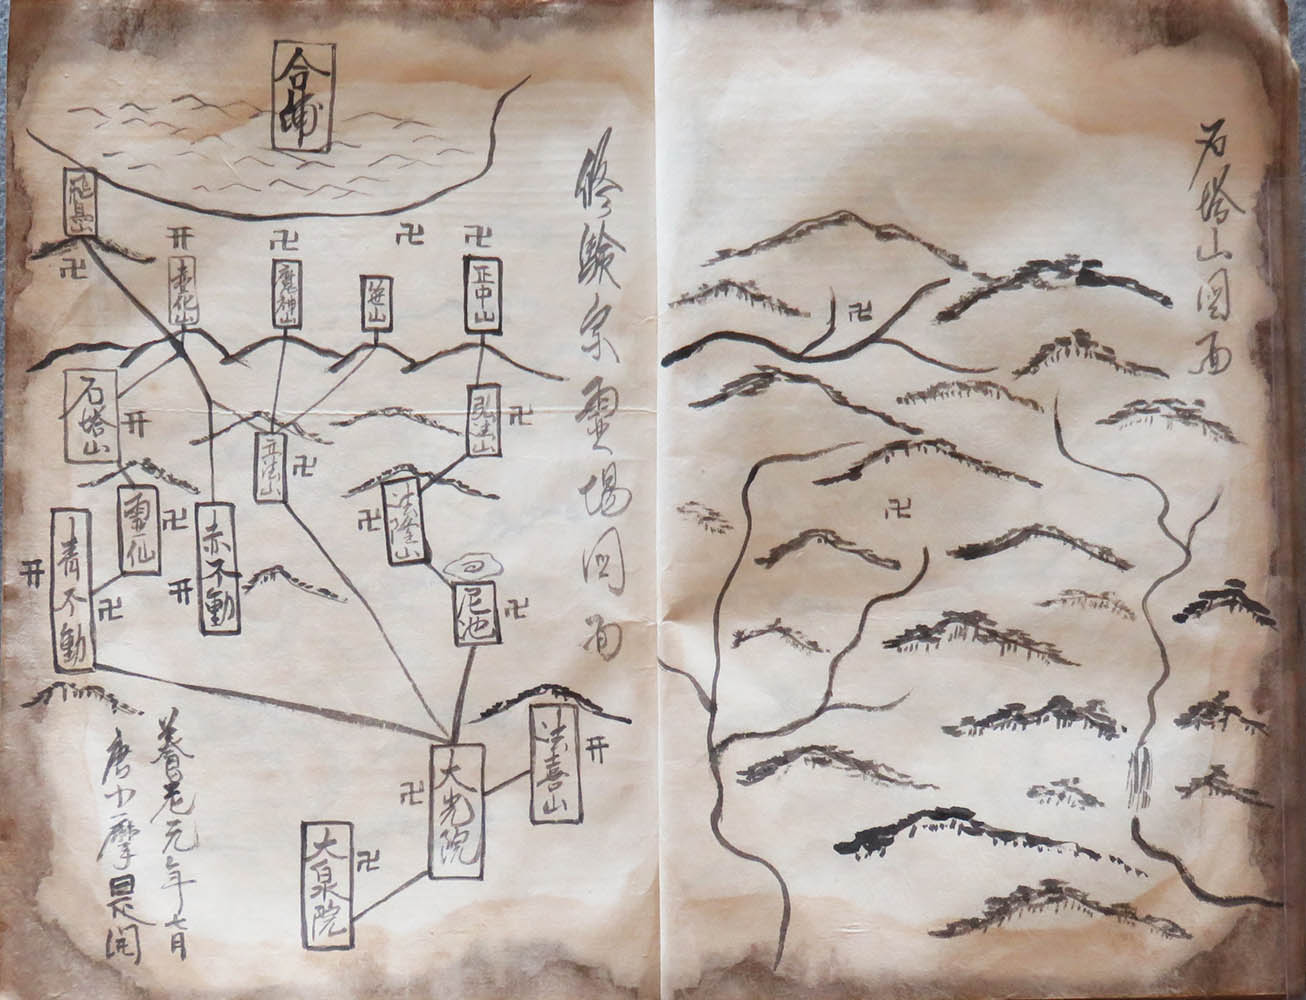 石塔山図面
修験宗霊場図面
合浦
飛鳥山
卍
开
壺化山
卍
魔神山
卍
笹山
卍
正中山
石塔山
开
立法山
卍
弘法山
卍
霊仙
卍
赤不動
开
卍
法隆山
青不動
开
卍
尼池
卍
大光院
卍
法喜山
开
大泉院
卍
養老元年七月
唐小摩
卍
卍